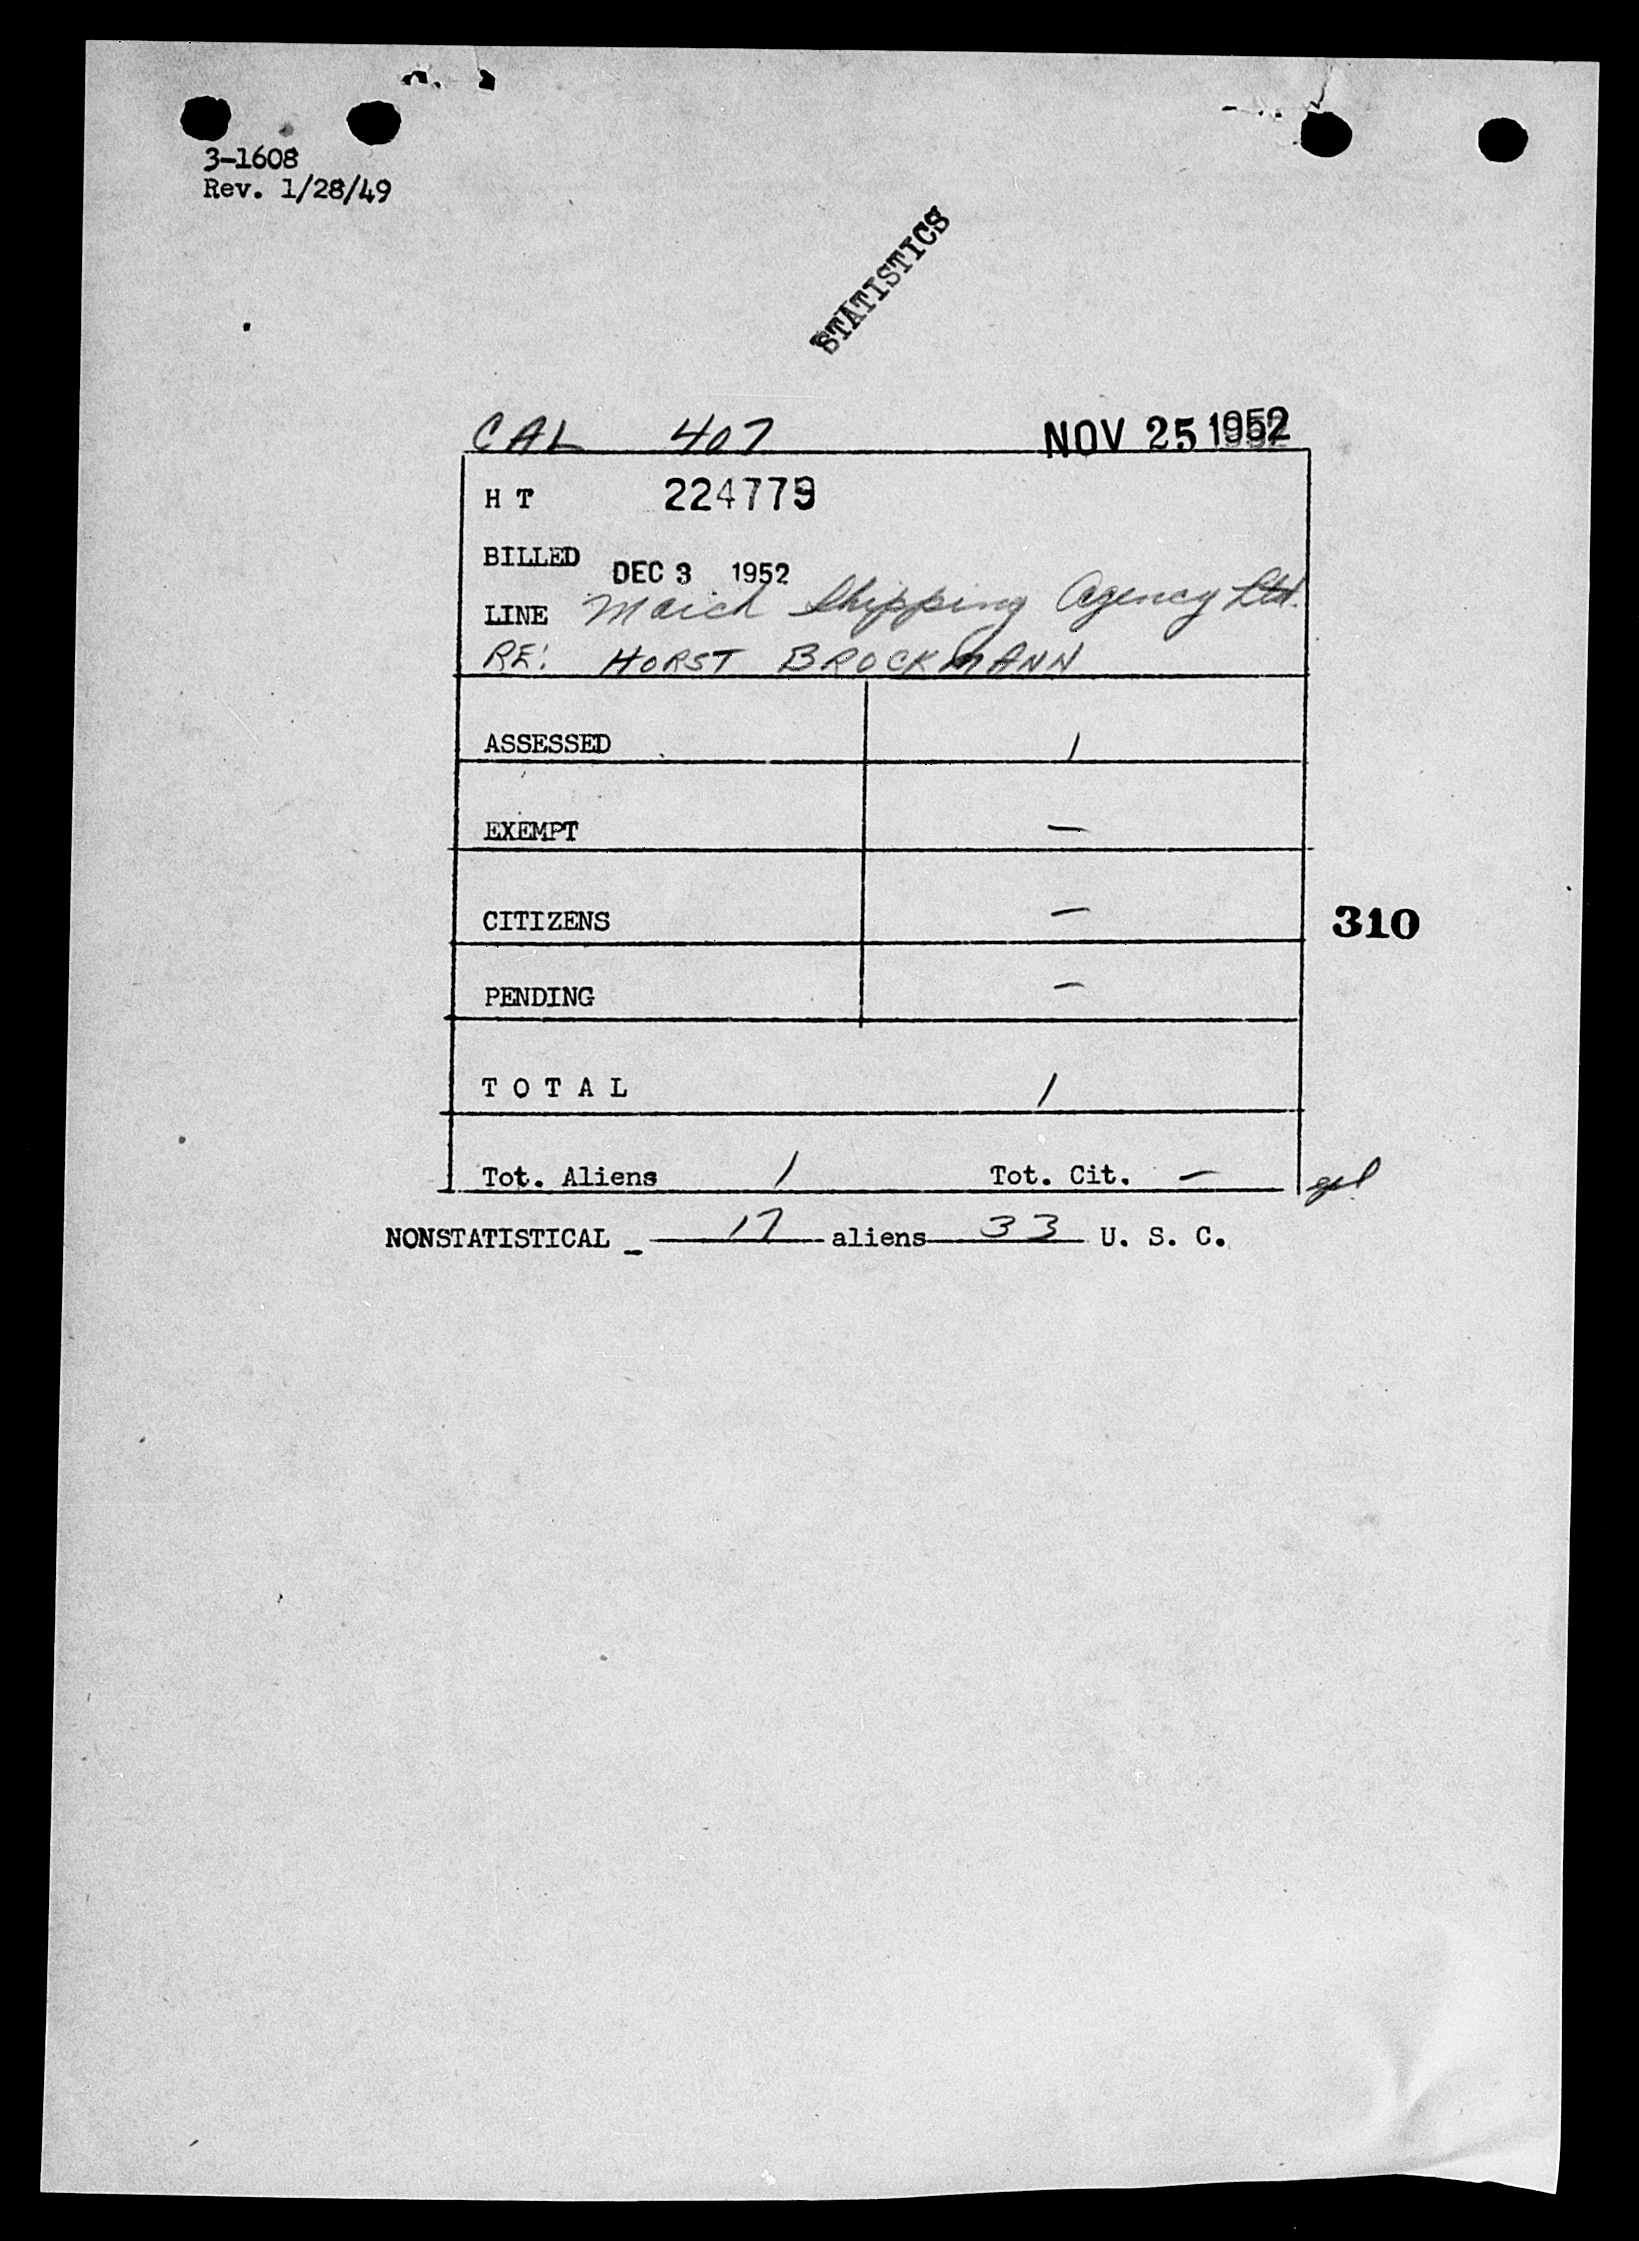 3-1608
Rev. 1/28/49
STATISTICS
CAL 407 NOV 25 1952
H T 224779
BILLED DEC 3 1952
LINE March Shipping Agency Ltd.
RE: HORST BROCKMANN
ASSESSED 1
EXEMPT —
CITIZENS —
310
PENDING —
T O T A L 1
Tot. Aliens 1 Tot. Cit. —
NONSTATISTICAL _ 17 aliens 33 U. S. C.